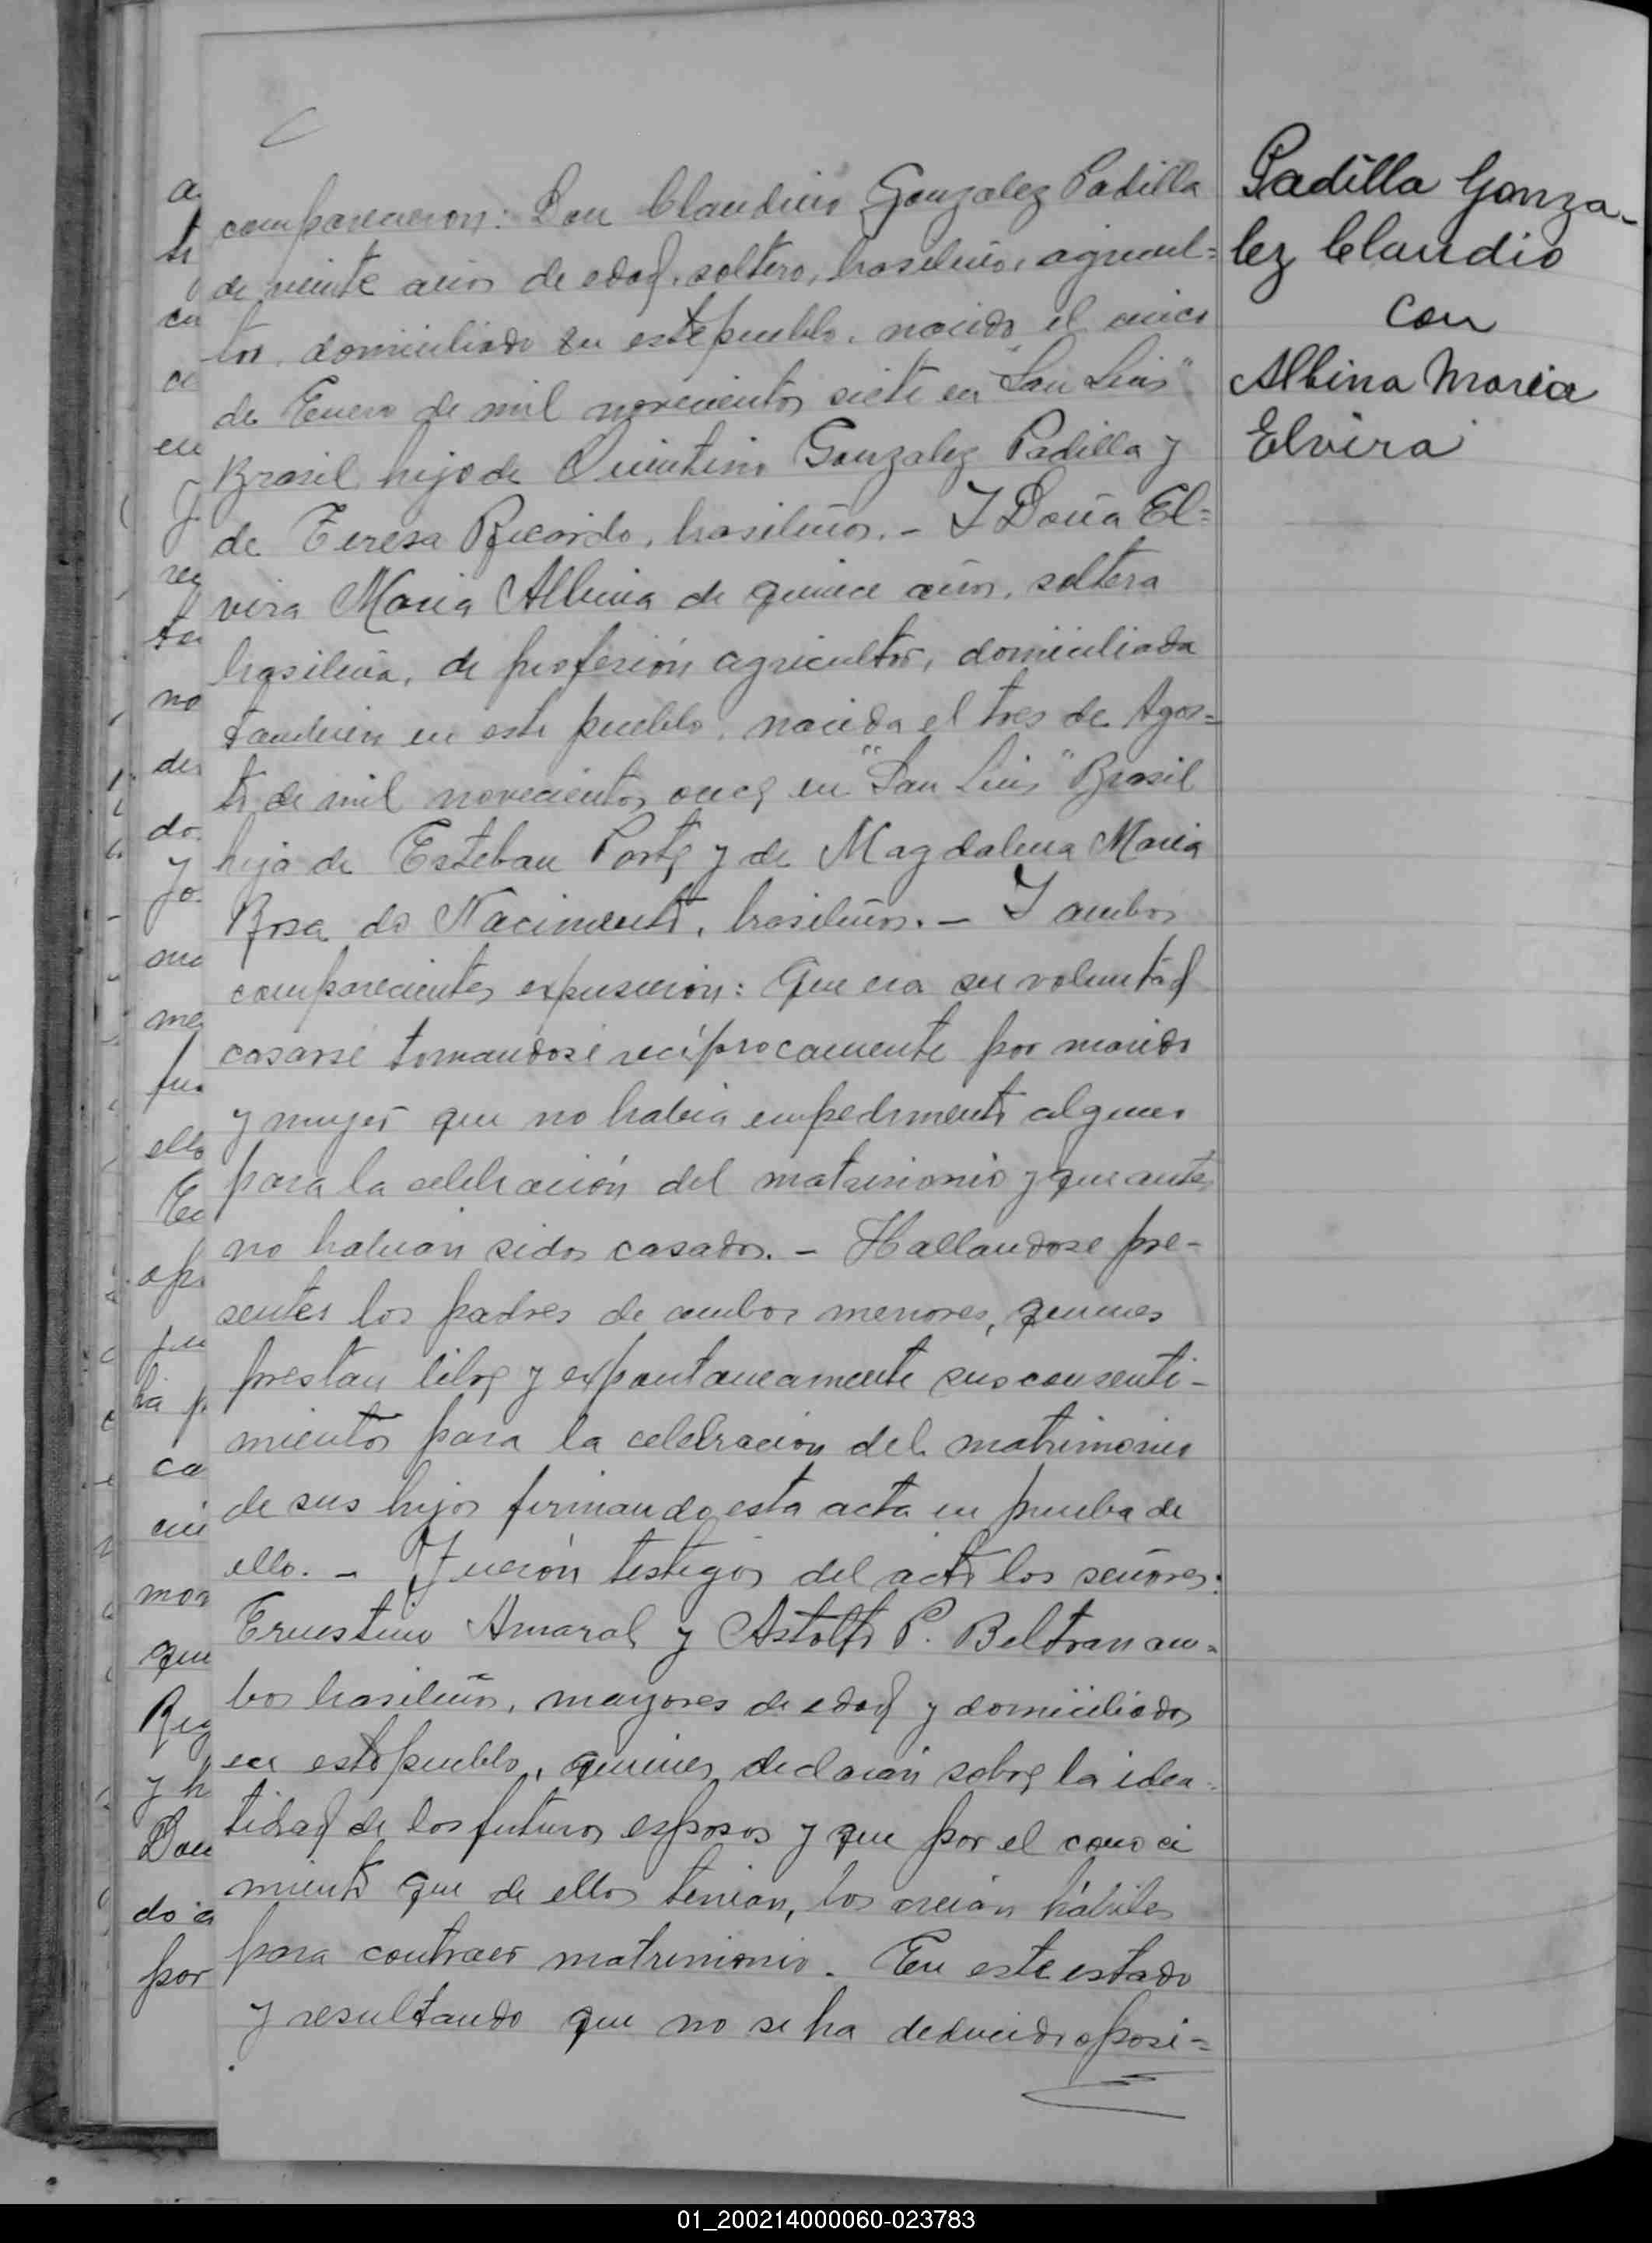 comparecieron: Don Claudino Gonzalez Padilla
de veinte años de edad, soltero, brasileño, agricul=
tor, domiciliado en este pueblo, nacido el cinco
de Enero de mil novecientos siete en "San Luis"
Brasil hijo de Quintino Gonzalez Padilla y
de Teresa Ricardo, brasileños. - Y Doña El=
vira Maria Albina de quince años, soltera
brasileña, de profesión agricultor, domiciliada
tambien en este pueblo, nacida el tres de Agos=
to de mil novecientos once en "San Luis" Brasil
hija de Esteban Porte y de Magdalena Maria
Rosa do Nacimento, brasileños. - Y ambos
comparecientes expusieron: Que era su voluntad
casarse tomandose recíprocamente por marido
y mujer que no habia empedimento alguno
para la celebración del matrimonio y que antes
no habian sidos casados. - Hallandose pre-
sentes los padres de ambos menores, quienes
prestan libre y expontaneamente sus consenti-
mientos para la celebracion del matrimonio
de sus hijos firmando esta acta en prueba de
ello. - Fueron testigos del acto los señores:
Ernestino Amaral y Astolfo P. Beltran am=
bos brasileños, mayores de edad y domiciliados
en este pueblo, quienes declaran sobre la iden=
tidad de los futuros esposos y que por el conoci
miento que de ellos tenian, los creian hábiles
para contraer matrimonio. En este estado
y resultando que no se ha deducido oposi=
Padilla Gonza-
lez Claudio
con
Albina Maria
Elvira
a
to
ca
ci
en
reg
ta
no
der
do
y
jo
mo
me
fue
ello
En
op
ha p
ca
cin
mon
que
Reg
y h
Don
do a
por
01_200214000060-023783